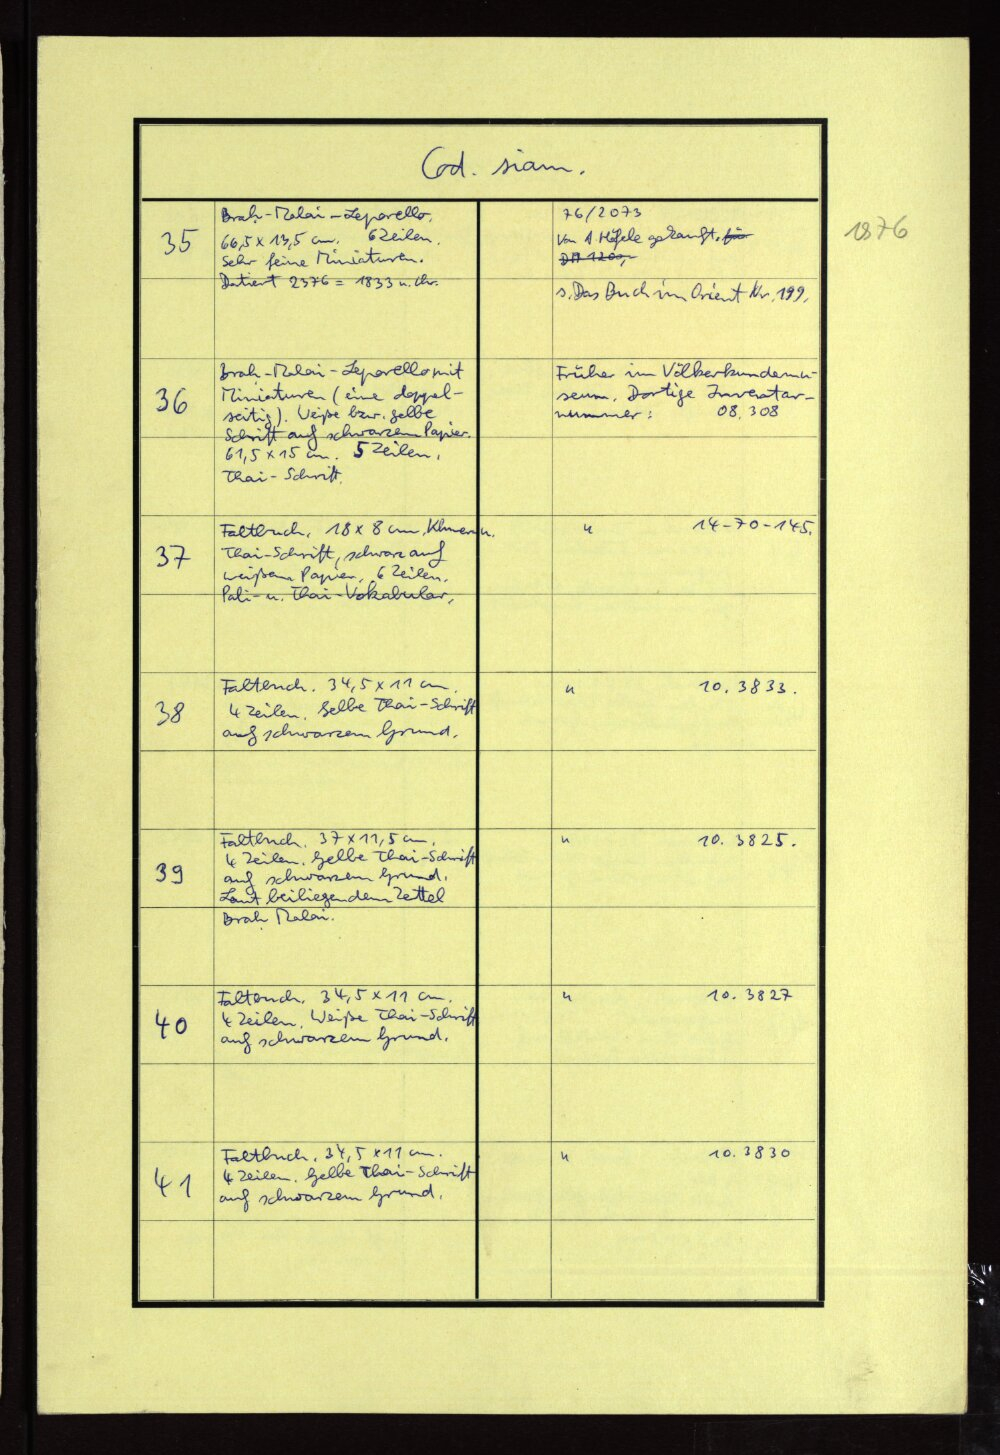 Cod. siam.
35
Braḥ-Malai-Leporello.
66,5 x 13,5 cm. 6 Zeilen.
Sehr feine Miniaturen.
Datiert 2376 = 1833 n. Chr.
76/2073
Von A. Höfele gekauft. für
DM 1200,-
s. Das Buch im Orient Nr. 199.
1876
36
Braḥ-Malai-Leporello mit
Miniaturen (eine doppel-
seitig). Weiße bzw. gelbe
Schrift auf schwarzem Papier.
61,5 x 15 cm. 5 Zeilen.
Thai-Schrift.
Früher im Völkerkundemu-
seum. Dortige Inventar-
nummer: 08.308
37
Faltbuch. 18 x 8 cm. Khmer u.
Thai-Schrift, schwarz auf
weißem Papier. 6 Zeilen.
Pali- u. Thai-Vokabular.
" 14-70-145.
38
Faltbuch. 34,5 x 11 cm.
4 Zeilen. Gelbe Thai-Schrift
auf schwarzem Grund.
" 10.3833.
39
Faltbuch. 37 x 11,5 cm.
4 Zeilen. Gelbe Thai-Schrift
auf schwarzem Grund.
Laut beiliegendem Zettel
Braḥ Malai.
" 10.3825.
40
Faltbuch. 34,5 x 11 cm.
4 Zeilen. Weiße Thai-Schrift
auf schwarzem Grund.
" 10.3827
41
Faltbuch. 34,5 x 11 cm.
4 Zeilen. Gelbe Thai-Schrift
auf schwarzem Grund.
" 10.3830